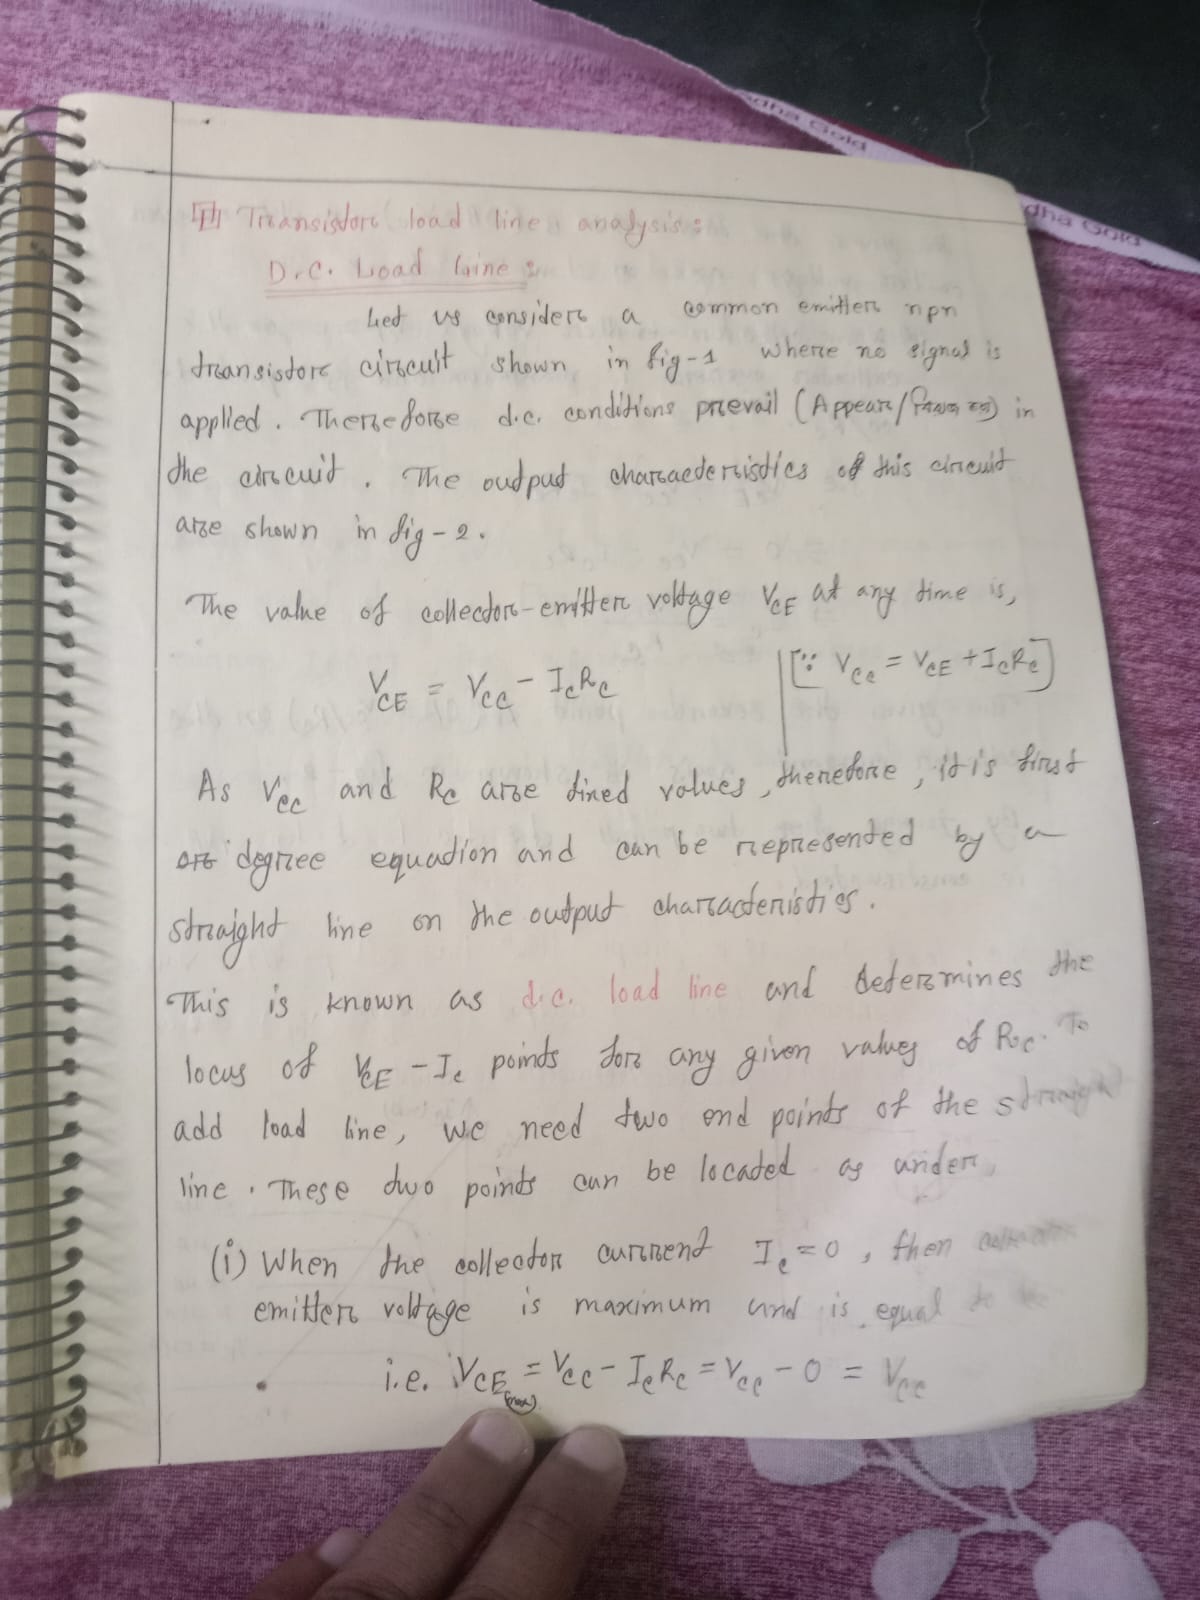 Transistor load line analysis:
D.C. Load Line:
Let us consider a common emitter npn
transistor circuit shown in fig-1 where no signal is
applied. Therefore d.c. conditions prevail (Appear/ ) in
the circuit. The output characteristics of this circuit
are shown in fig-2.
The value of collector-emitter voltage V_CE at any time is,
V_CE = V_CC - I_C R_C | [∵ V_CC = V_CE + I_C R_C]
As V_CC and R_C are fixed values, therefore, it is first
degree equation and can be represented by a
straight line on the output characteristics.
This is known as d.c. load line and determines the
locus of V_CE - I_C points for any given values of R_C. To
add load line, we need two end points of the straight
line. These two points can be located as under,
(i) When the collector current I_C = 0, then collector
emitter voltage is maximum and is equal to
i.e. V_CE (max) = V_CC - I_C R_C = V_CC - 0 = V_CC
dha Gold
dha Gold